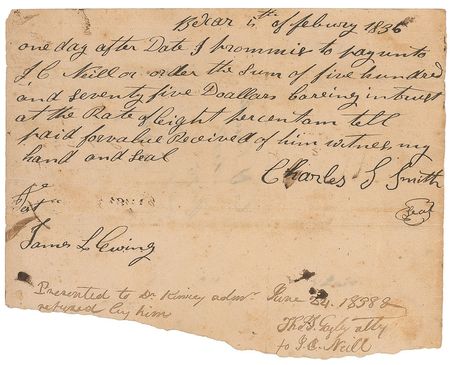 Bexar 6th of febury 1836
one day after Date I prommis to pay unto
J C Neill or order the sum of five hundred
and seventy five Doallars bareing intrust
at the Rate of Eight per cent am till
paid for value Received of him witness my
hand and seal
Charles S Smith
Seal
James L Ewing
Presented to Dr Kinney admr June 24. 1838
refused by him
atty
to J. C. Neill